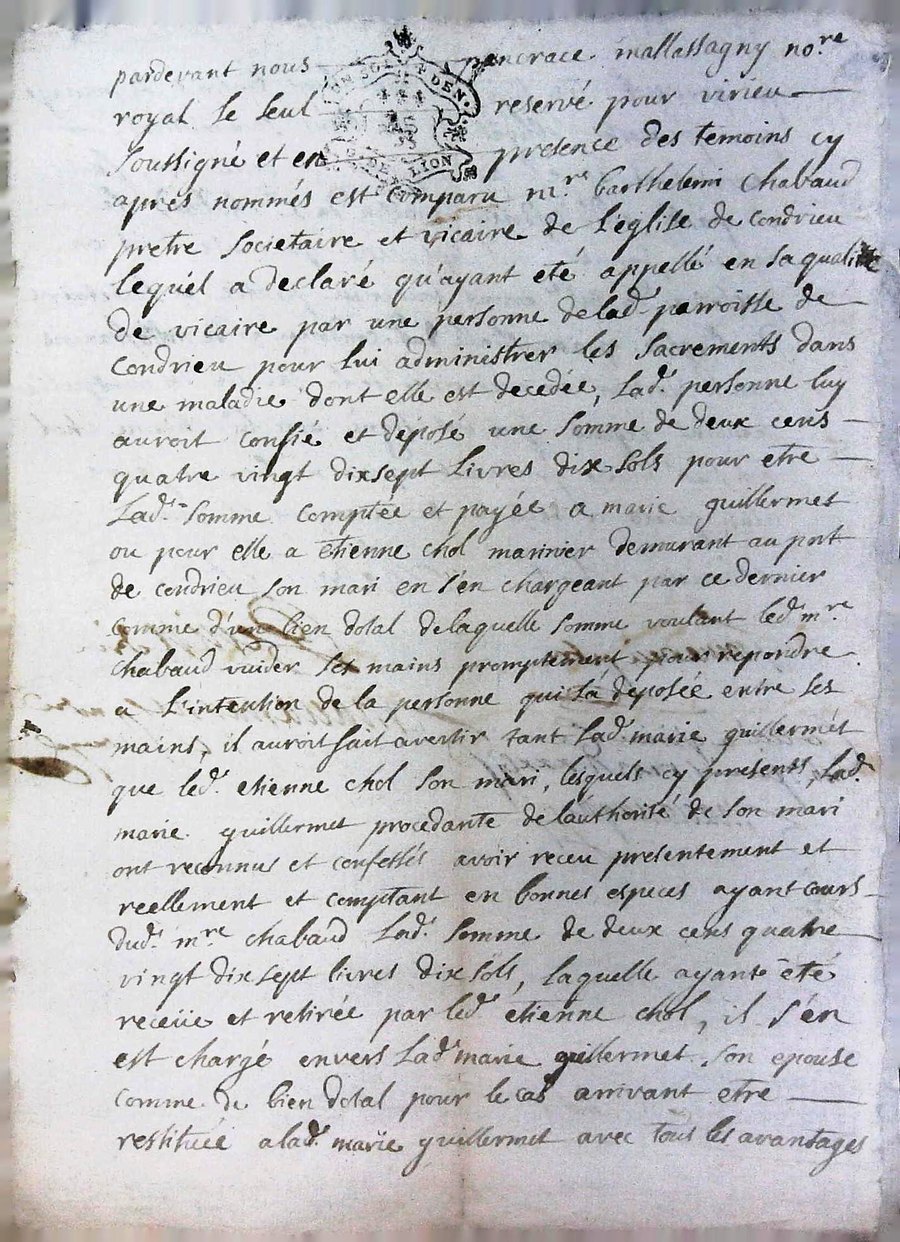 pardevant nous pancrace mallassagny no.re
royal le seul reservé pour virieu
UN SOL DEN.
LION
soussigné et en presence des temoins cy
apres nommés est comparu m.re barthelemi chabaud
pretre societaire et vicaire de l'eglise de condrieu
lequel a declaré qu'ayant eté appellé en sa qualité
de vicaire par une personne de lad. parroisse de
condrieu pour lui administrer les sacrements dans
une maladie dont elle est decedée, lad. personne luy
auroit confié et déposé une somme de deux cens
quatre vingt dixsept livres dix sols pour etre
lad. somme comptée et payée a marie guillermet
ou pour elle a etienne chol marinier demurant au port
de condrieu son mari en s'en chargeant par ce dernier
comme d'un bien dotal de laquelle somme voulant led. m.re
chabaud vuider ses mains promptement pour repondre
a l'intention de la personne qui l'a deposée entre ses
mains, il auroit fait avertir tant lad. marie guillermet
que led. etienne chol son mari, lesquels cy presents, lad.
marie guillermet procedante de lauthorité de son mari
ont reconnus et confessés avoir receu presentement et
reellement et comptant en bonnes especes ayant cours
dud. m.re chabaud lad. somme de deux cens quatre
vingt dix sept livres dix sols, laquelle ayant eté
receüe et retirée par led. etienne chol, il s'en
est chargé envers lad. marie guillermet son epouse
comme de bien dotal pour le cas arrivant etre
restituée a lad. marie guillermet avec tous les avantages